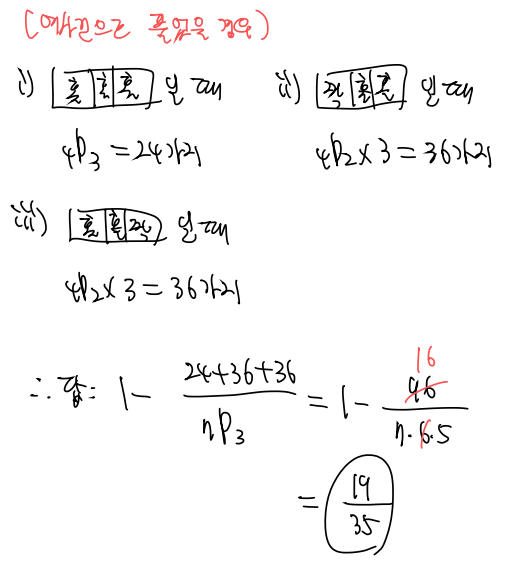 (여사건으로 풀었을 경우)
i) 홀 홀 홀 일 때
ii) 짝 홀 홀 일 때
4P3 = 24가지
4P2 × 3 = 36가지
iii) 홀 홀 짝 일 때
4P2 × 3 = 36가지
∴ 답: 1 - (24+36+36)/7P3 = 1 - 96/(7·6·5)
16
= 19/35